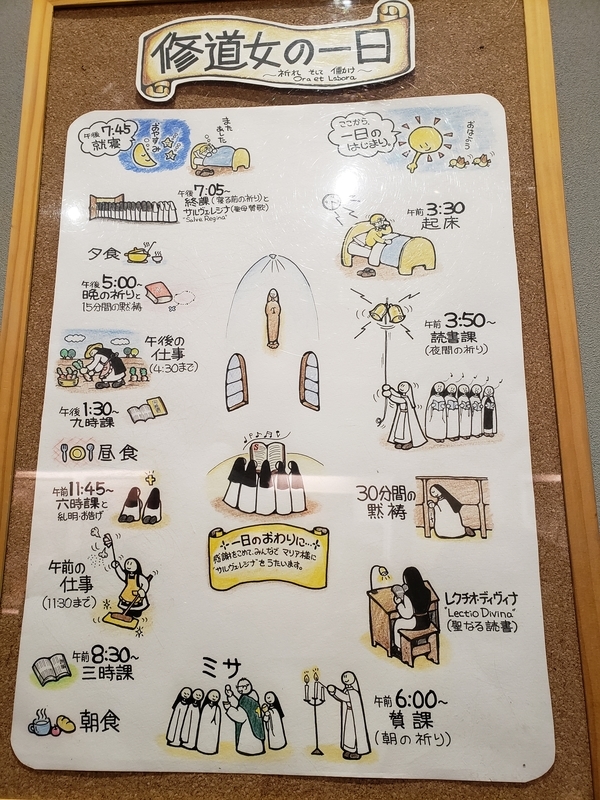 修道女の一日
〜祈れ そして 働け〜
Ora et Labora
ここから、
一日の
はじまり。
おはよう
午前3:30
起床
午前3:50〜
読書課
(夜間の祈り)
30分間の
黙祷
レクチオディヴィナ
"Lectio Divina"
(聖なる読書)
午前6:00〜
賛課
(朝の祈り)
ミサ
朝食
午前8:30〜
三時課
午前の
仕事
(11:30まで)
午前11:45〜
六時課と
糺明・お告げ
昼食
午後1:30〜
九時課
午後の
仕事
(4:30まで)
午後5:00〜
晩の祈りと
15分間の黙祷
夕食
午後7:05〜
終課(寝る前の祈り)と
サルヴェレジナ(聖母賛歌)
"Salve Regina"
午後7:45
就寝
おやすみ
またあした
一日のおわりに…
感謝をこめて、みんなで マリア様に
"サルヴェレジナ"をうたいます。